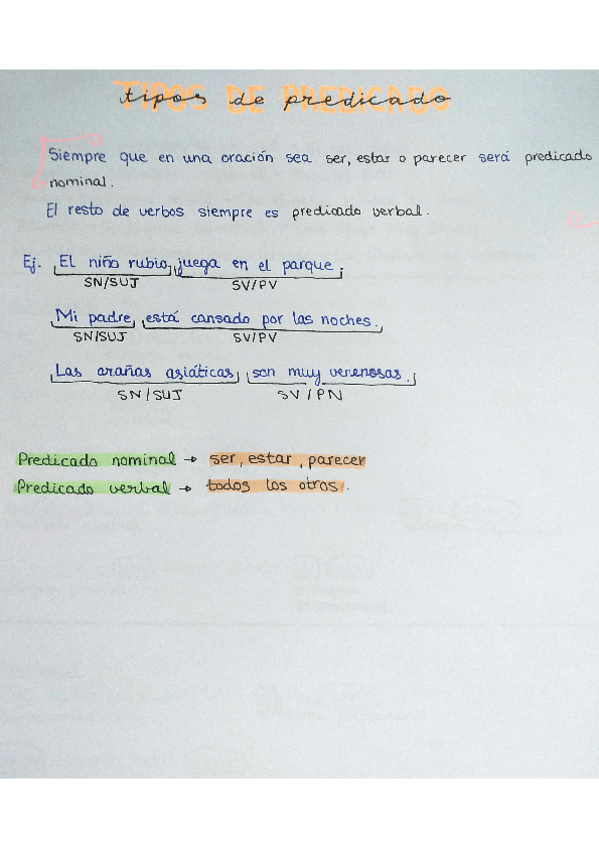 tipos de predicado
Siempre que en una oración sea ser, estar o parecer será predicado
nominal.
El resto de verbos siempre es predicado verbal.
Ej. El niño rubio juega en el parque.
SN/SUJ SV/PV
Mi padre está cansado por las noches.
SN/SUJ SV/PV
Las arañas asiáticas son muy venenosas.
SN/SUJ SV/PN
Predicado nominal → ser, estar, parecer
Predicado verbal → todos los otros.